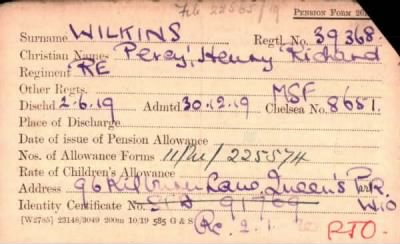 File 22565/19
PENSION FORM 26
Surname WILKINS Regtl. No. 39368.
Christian Names Percy, Henry Richard
Regiment RE
Other Regts. MSF
Dischd 2.6.19 Admtd. 30.12.19 Chelsea No. 8651.
Place of Discharge
Date of issue of Pension Allowance
Nos. of Allowance Forms 11/M/ 225574
Rate of Children's Allowance
Address 96 Kilburn Lane, Queen's Park
Identity Certificate No. 91769 W.10
[W2785] 23148/3049 200m 10/19 585 G & S Re. 2.1. PTO.